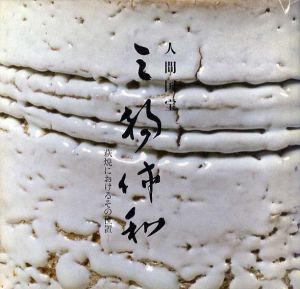 人間国宝
三輪休和
萩焼におけるその位置